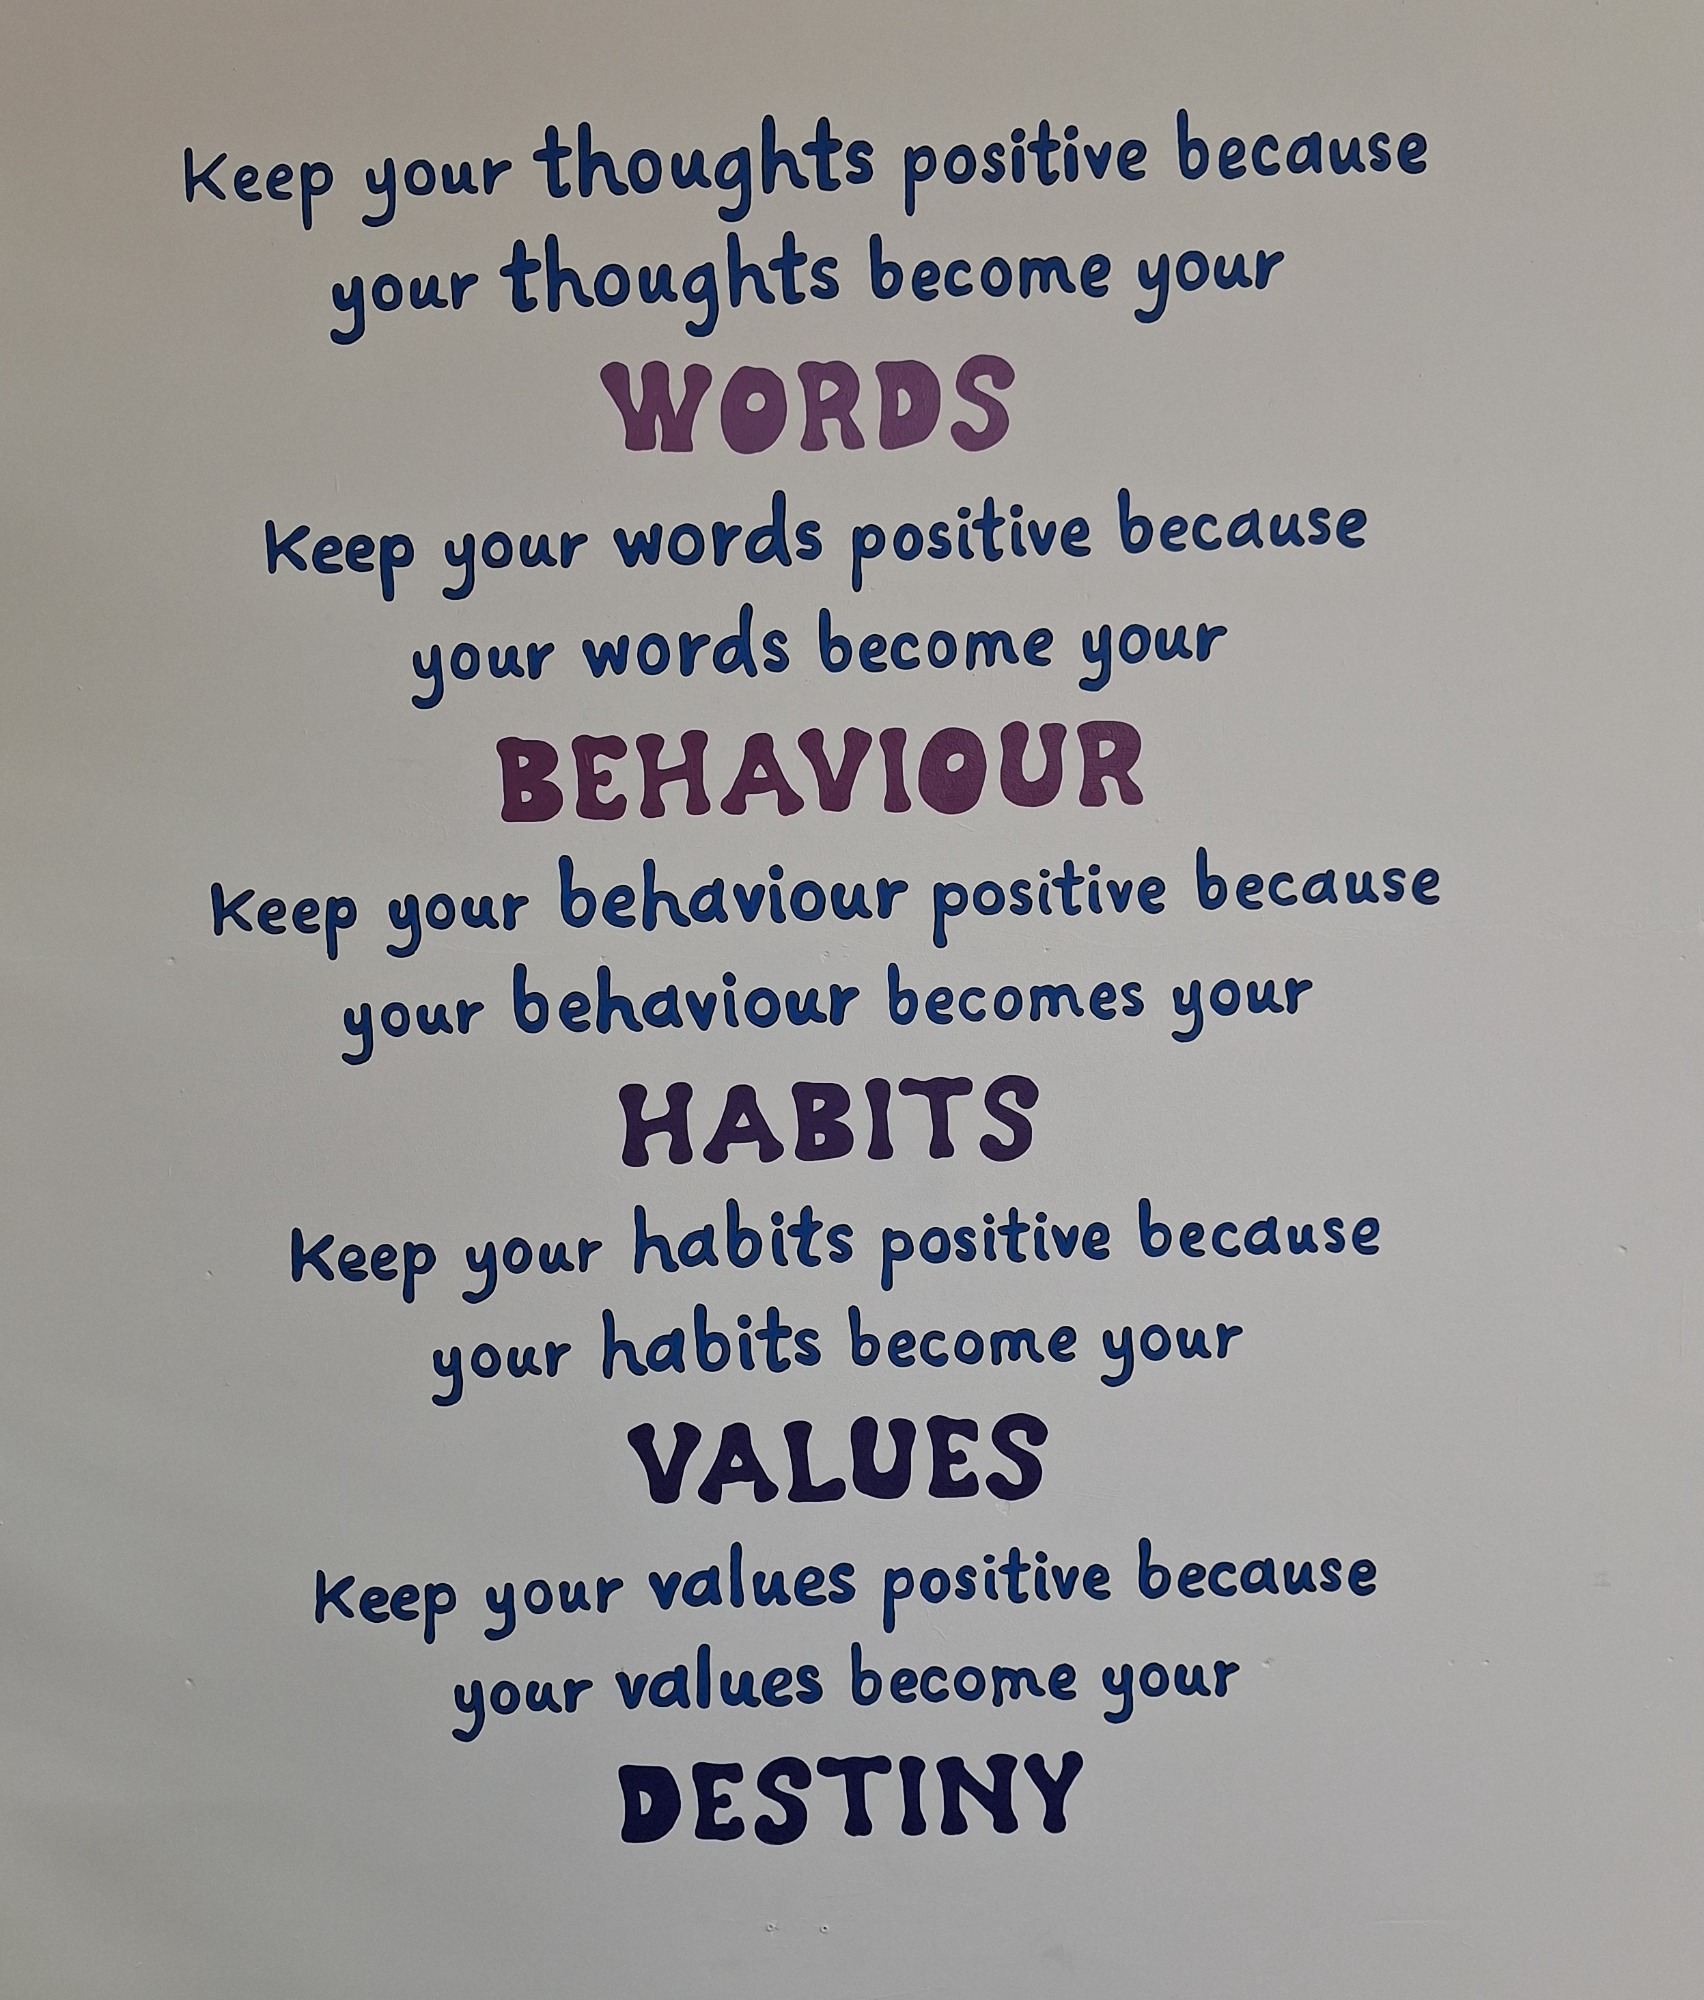 Keep your thoughts positive because
your thoughts become your
WORDS
Keep your words positive because
your words become your
BEHAVIOUR
Keep your behaviour positive because
your behaviour becomes your
HABITS
Keep your habits positive because
your habits become your
VALUES
Keep your values positive because
your values become your
DESTINY